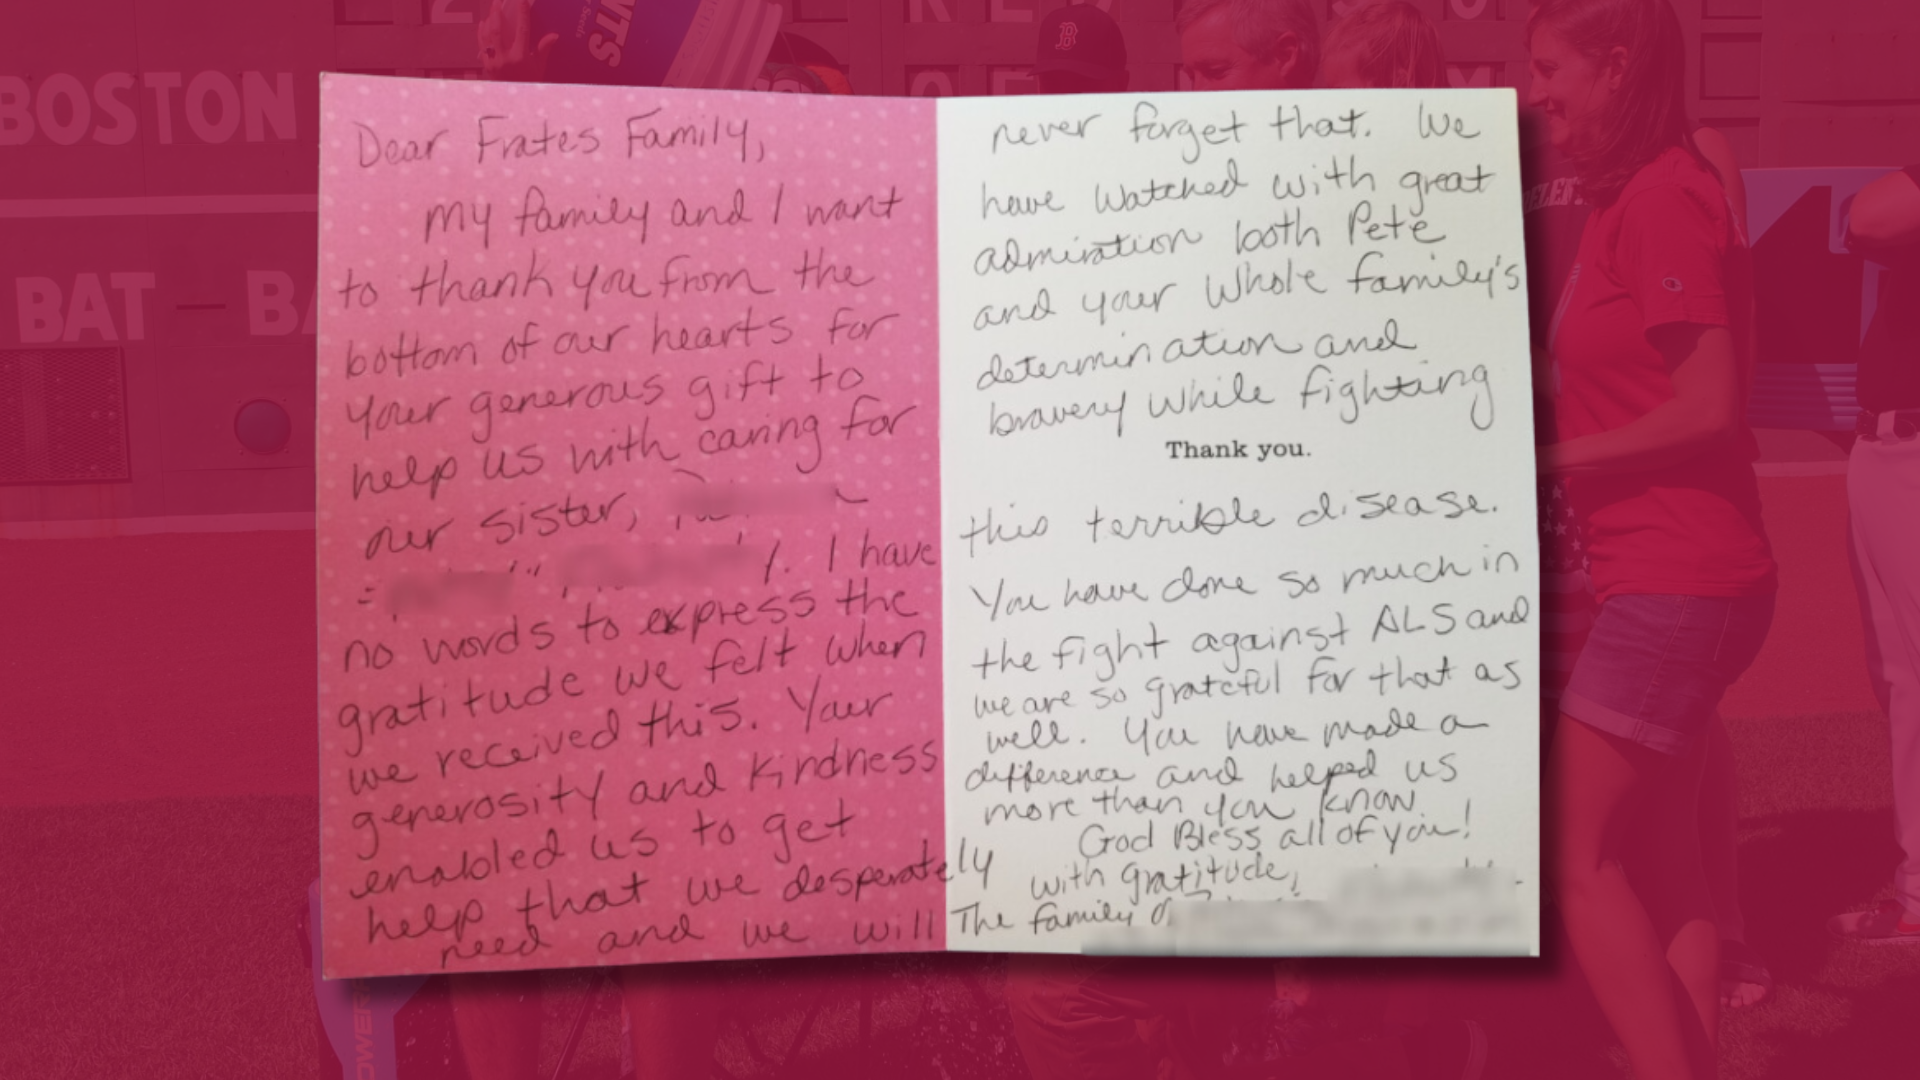 Dear Frates Family,
My family and I want
to thank you from the
bottom of our hearts for
your generous gift to
help us with caring for
our sister,
I have
no words to express the
gratitude we felt when
we received this. Your
generosity and kindness
enabled us to get
help that we desperately
need and we will
never forget that. We
have watched with great
admiration both Pete
and your whole family's
determination and
bravery while fighting
Thank you.
this terrible disease.
You have done so much in
the fight against ALS and
we are so grateful for that as
well. You have made a
difference and helped us
more than you know
God Bless all of you!
with gratitude,
The family of
BOSTON
BAT
B